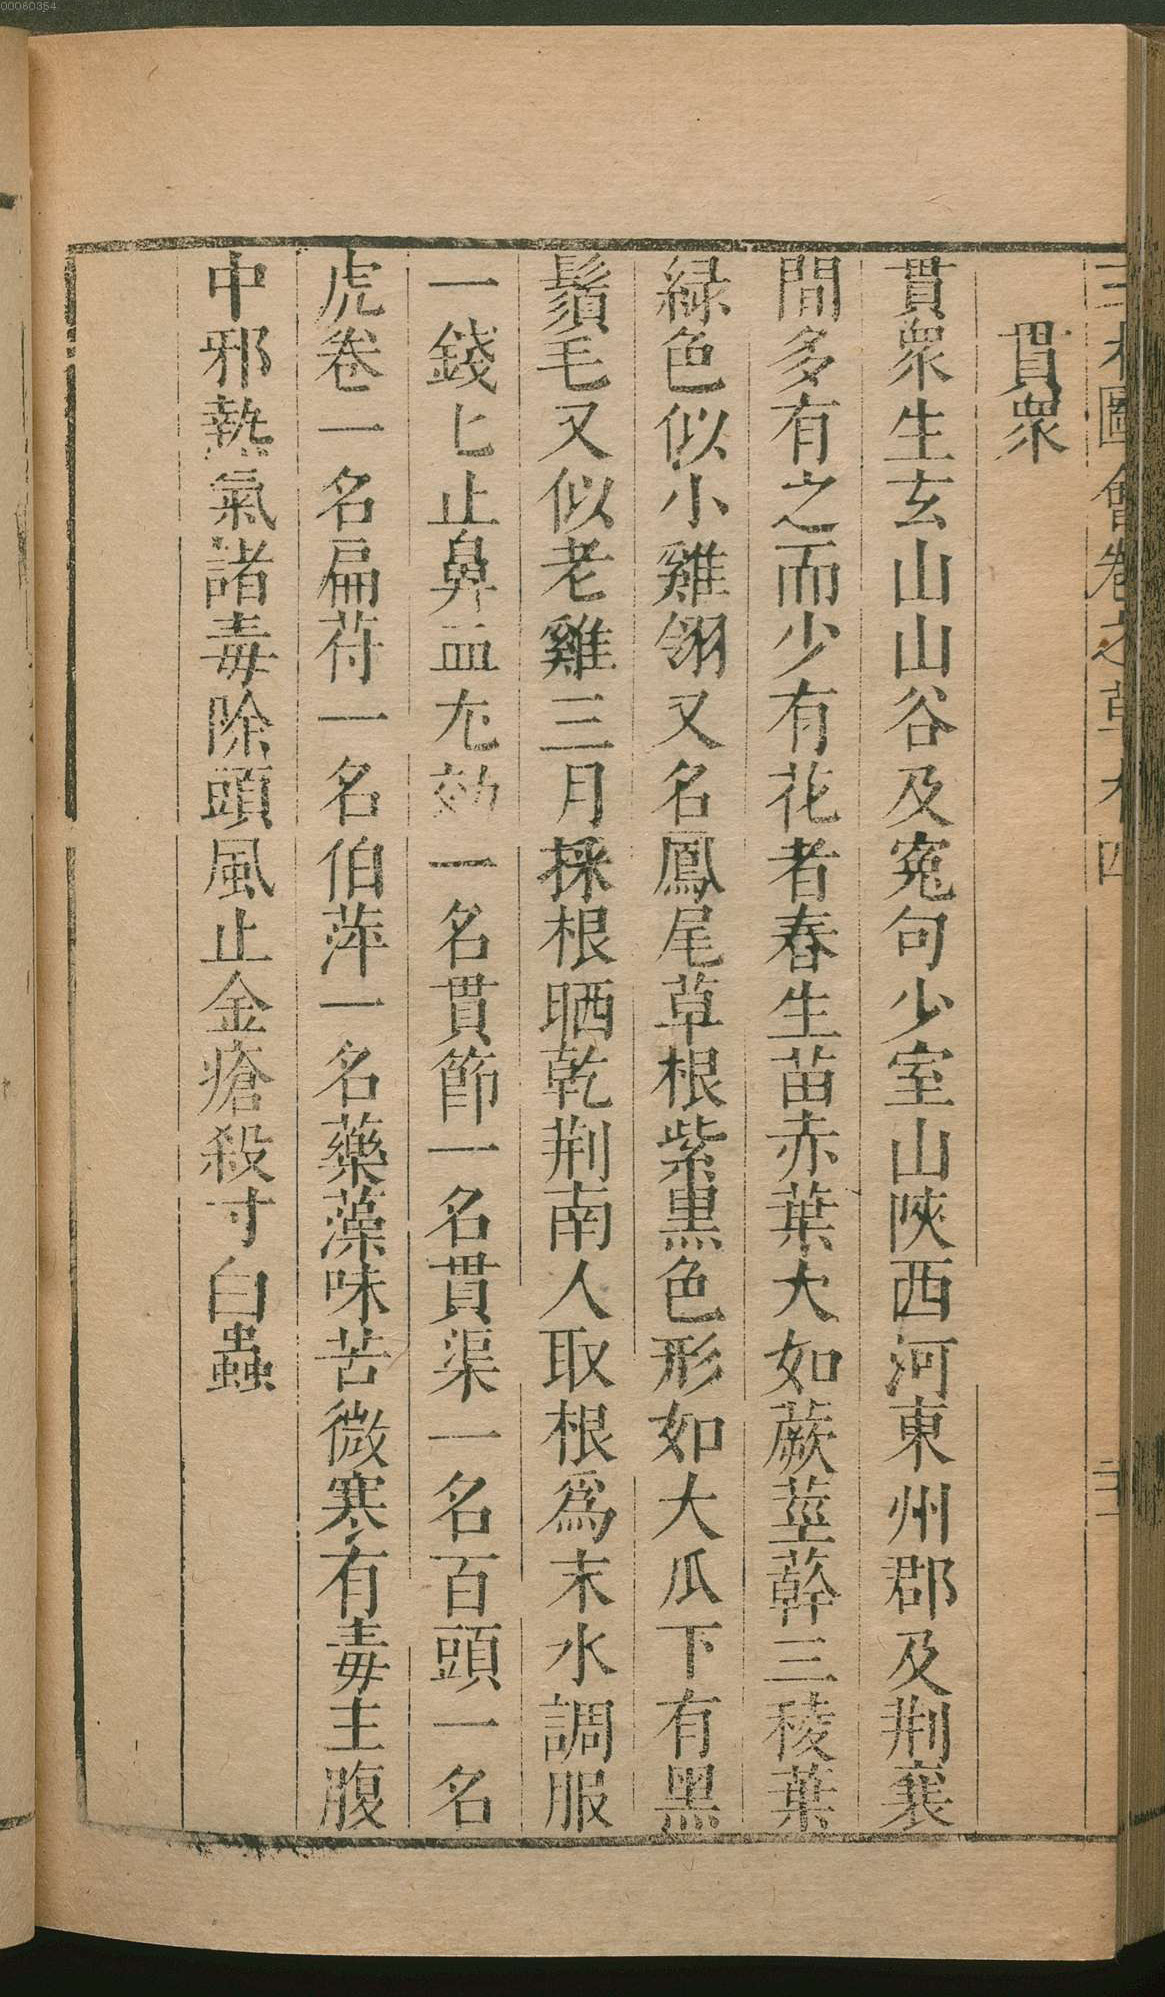 00060354
三才圖會卷之草木四
貫衆
貫衆生玄山山谷及寃句少室山陝西河東州郡及荆襄
間多有之而少有花者春生苗赤葉大如蕨莖幹三稜葉
緑色似小雞翎又名鳳尾草根紫黒色形如大瓜下有黑
鬚毛又似老雞三月採根晒乾荆南人取根爲末水調服
一錢匕止鼻血尢効一名貫節一名貫渠一名百頭一名
虎卷一名扁苻一名伯萍一名藥藻味苦微寒有毒主腹
中邪熱氣諸毒除頭風止金瘡殺寸白蟲